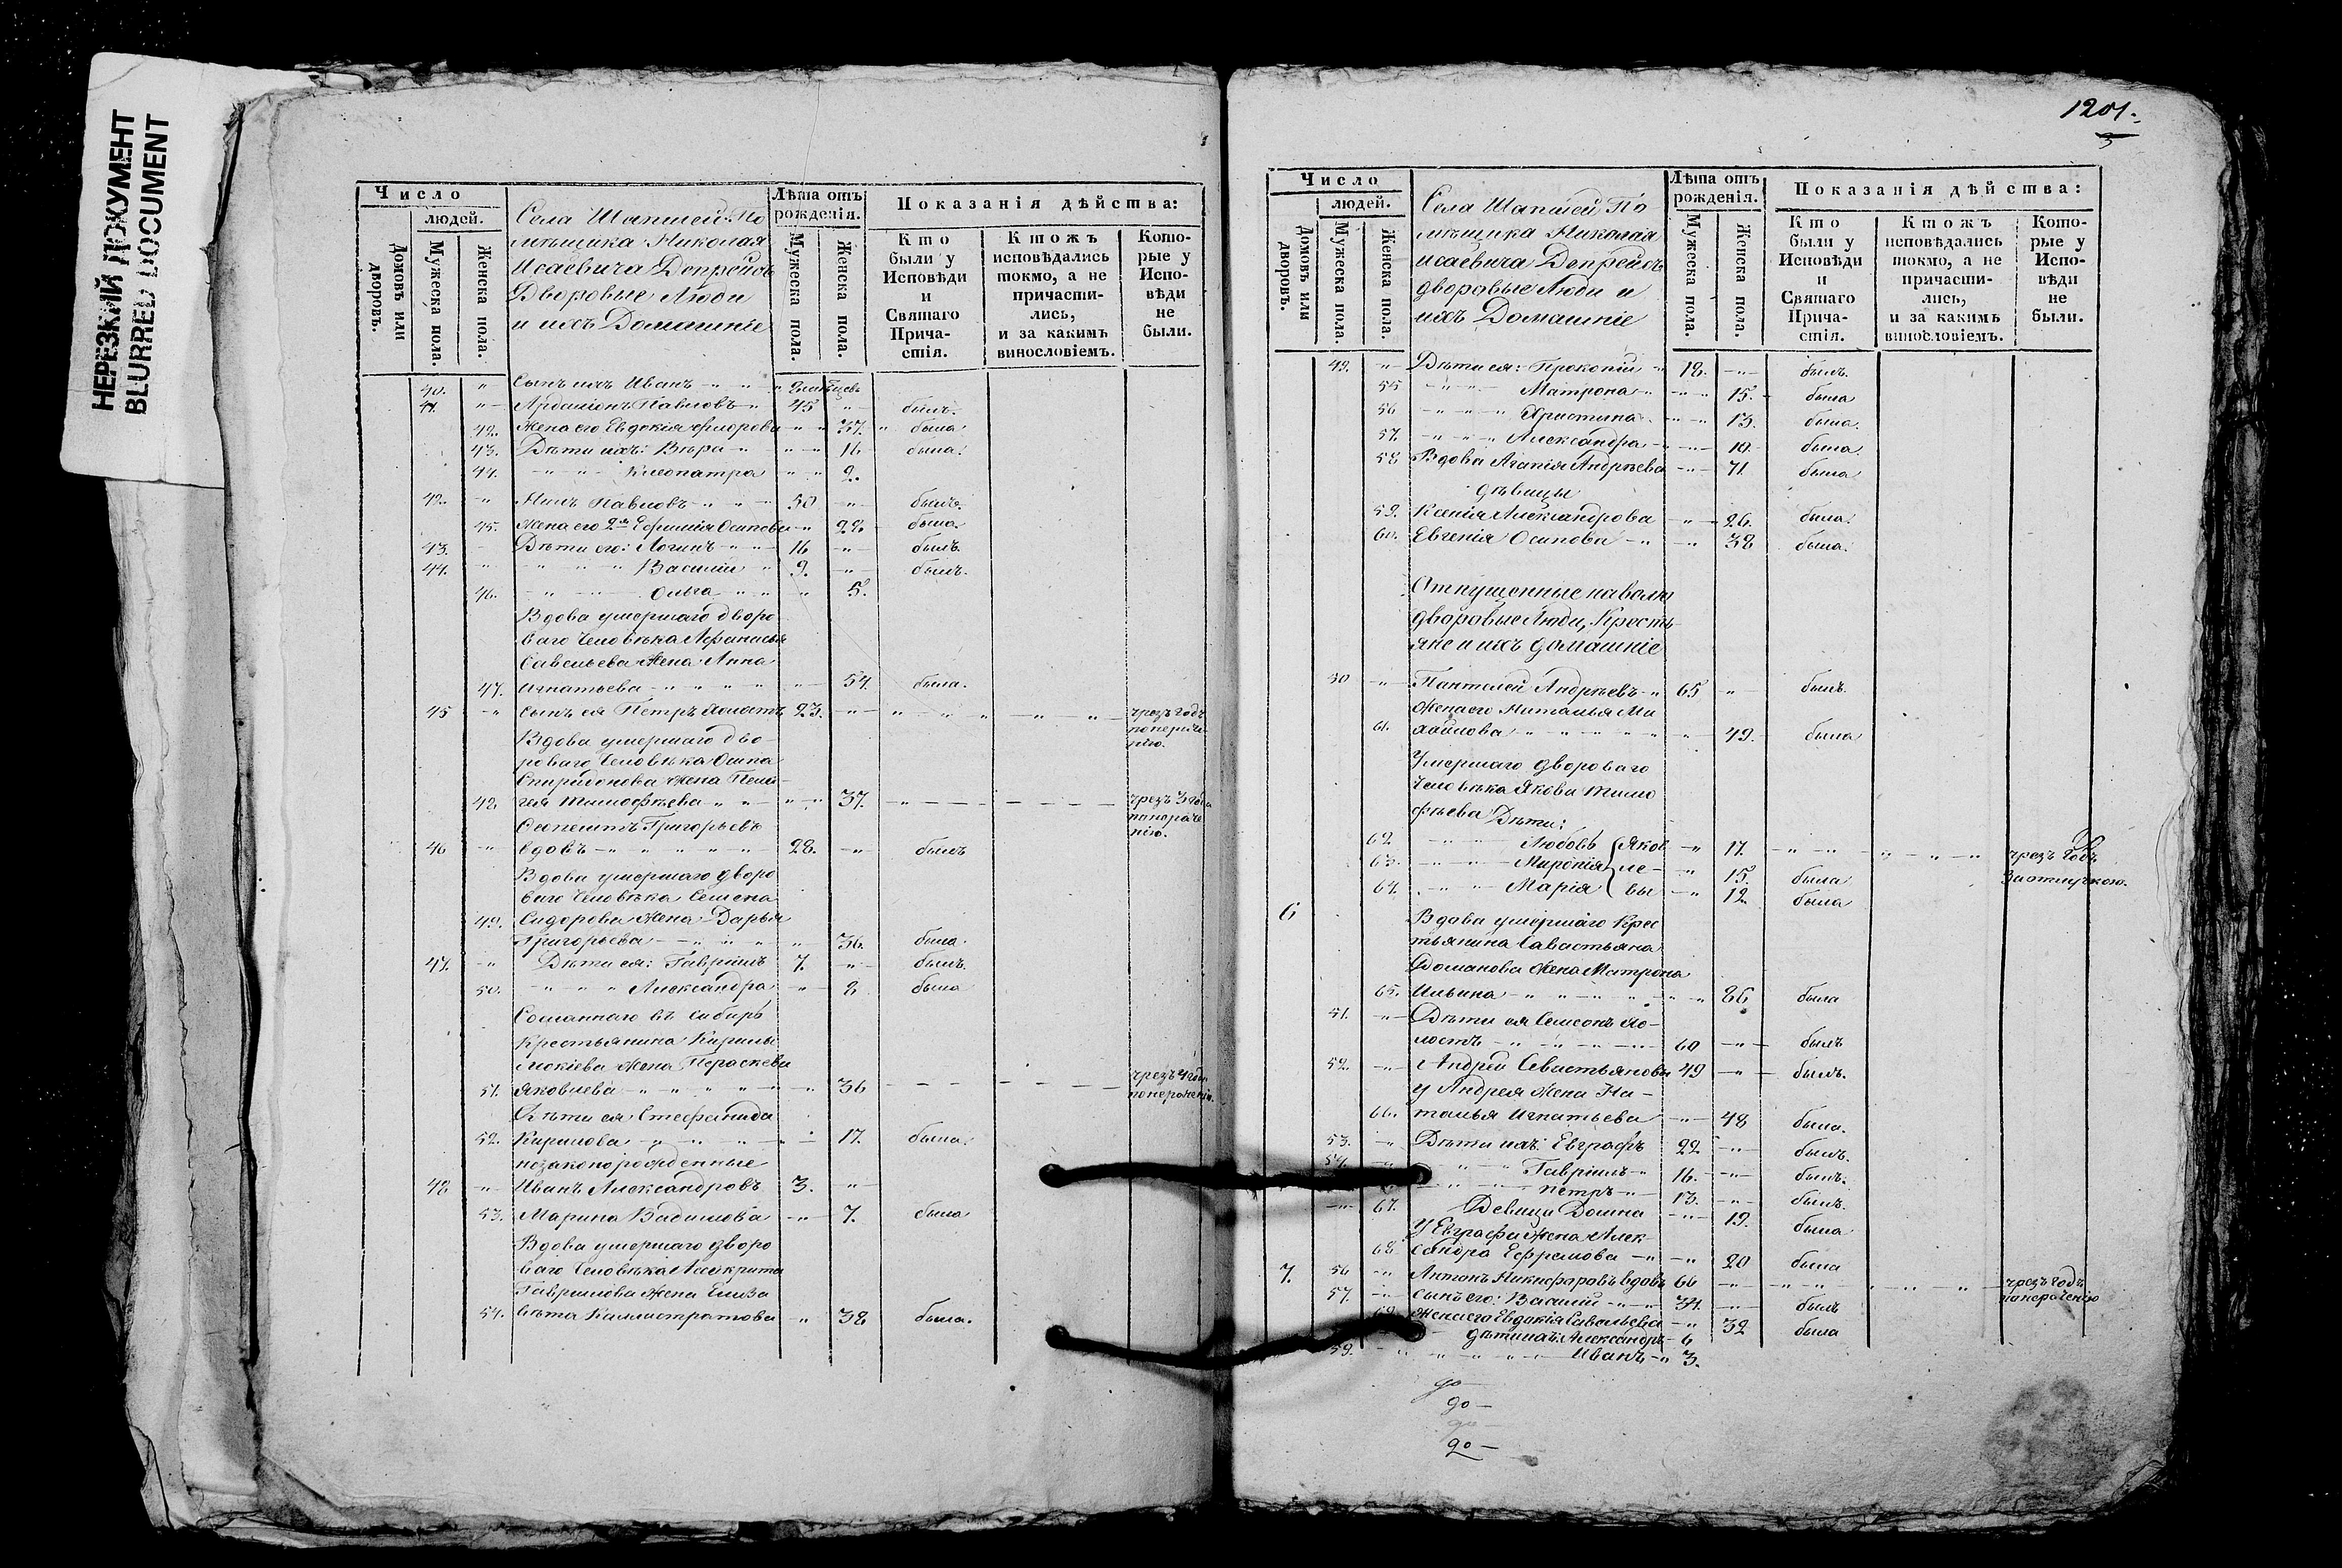 НЕРЕЗКИЙ ДОКУМЕНТ
BLURRED DOCUMENT
Число
людей.
Домовъ или дворовъ.
Мужеска пола.
Женска пола.
Села Шапшей По
мѣщика Николая
Исаевича Депрейсъ
Дворовые Люди
и ихъ Домашніе
Лѣта отъ рожденія.
Мужеска пола.
Женска пола.
Показанія дѣйства:
Кто были у Исповѣди и Святаго Прича-стія.
Ктожъ исповѣдались токмо, а не причасти-лись, и за какимъ винословіемъ.
Кото-рые у Испо-вѣди не были.
40. " Сынъ ихъ Иванъ
41. " Ардаліонъ Павловъ 45 " былъ.
42. Жена его Евдокія Флорова " 37. была
43. Дѣти ихъ: Вѣра " 11 была.
44. Клеопатра " 2.
42. " Нилъ Павловъ 50 " былъ.
45. Жена его 2я Ефимія Осипова " 22 была
43. Дѣти его: Логинъ 16 " былъ.
44. " Василій 9. " былъ.
46. Ольга " 5.
Вдова умершаго дворо
ваго человѣка Афанасья
Савельева Жена Анна
47. Игнатьева 54. была.
45 " Сынъ ея Петръ Холостъ 23. " чрезъ годъ
по нераче
нію.
Вдова умершаго дво-
роваго человѣка Осипа
Спиридонова Жена Пела-
48. гея Тимофѣева " 37. чрезъ 3 года
по нераче
нію.
Григорьевъ
46 " вдовъ 28. " былъ
Вдова умершаго дворо
ваго человѣка Семена
49. Сидорова Жена Дарья
Григорьева " 36. была.
47. " Дѣти ея: Гавріилъ 7. " былъ.
50. Александра " 8 была
Сосланнаго въ Сибирь
Крестьянина Кирилы
Жена Параскева
51. Яковлева " 36 чрезъ 4 года
по нераченію.
Дѣти ея Стефанида
52. Кирилова " 17. была
незаконорожденные
48 " Иванъ Александровъ 3. "
53. Марина Вадимова " 7. была
Вдова умершаго дворо
ваго человѣка Асинкрита
Гаврилова Жена Елиза
54. вѣта Каллистратова " 38 была.
1201.
Число
людей.
Домовъ или дворовъ.
Мужеска пола.
Женска пола.
Села Шапшей По
мѣщика Николая
Исаевича Депрейсъ
дворовые Люди и
ихъ Домашніе
Лѣта отъ рожденія.
Мужеска пола.
Женска пола.
Показанія дѣйства:
Кто были у Исповѣди и Святаго Прича-стія.
Ктожъ исповѣдались токмо, а не причасти-лись, и за какимъ винословіемъ.
Кото-рые у Испо-вѣди не были.
49. " Дѣти ея: Прокопій 18. " былъ.
55 Матрона " 15. была
56 Христина " 13. была.
57. Александра " 10. была.
58 Вдова Агапія Андрѣева " 71. была
дѣвицы
59. Ксенія Александрова " 26. была.
60. Евгенія Осипова " 38 была.
Отпущенные на волю
дворовые Люди, Кресть-
яне и ихъ домашніе
50 " Пантелей Андрѣевъ 65 " былъ.
Жена его Наталья Ми
61. хайлова " 49. была
Умершаго двороваго
человѣка Якова Тимо
фѣева Дѣти:
62 Любовь { Яков " 17. чрезъ годъ
63. Миропія } ле- " 15. была за отлучкою.
64. Марія ( вы " 12. была
6 Вдова умершаго Крес
тьянина Савастьяна
Романова Жена Матрона
65. Ильина " 86 была
51. " Дѣти ея Самсонъ Хо-
лостъ 60 " былъ
52. " Андрей Севастьяновъ 49 " былъ.
у Андрея Жена На-
66. талья Игнатьева " 48 была.
53. " Дѣти ихъ: Евграфъ 22 " былъ.
54. " Гавріилъ 16. " былъ.
Петръ 13. " былъ.
67. Девица Домна " 19. была
у Евграфа Жена Алек-
68. сандра Ефремова " 20 была
7. 56 " Антонъ Никифоровъ вдовъ 66 " чрезъ годъ
по нераченію
57. " Сынъ его: Василій 34. " былъ
69. Жена его Евдокія Савельева " 32 была
дѣти ихъ: Александръ 6
59. " Иванъ 3.
до —
до —
до —
до —